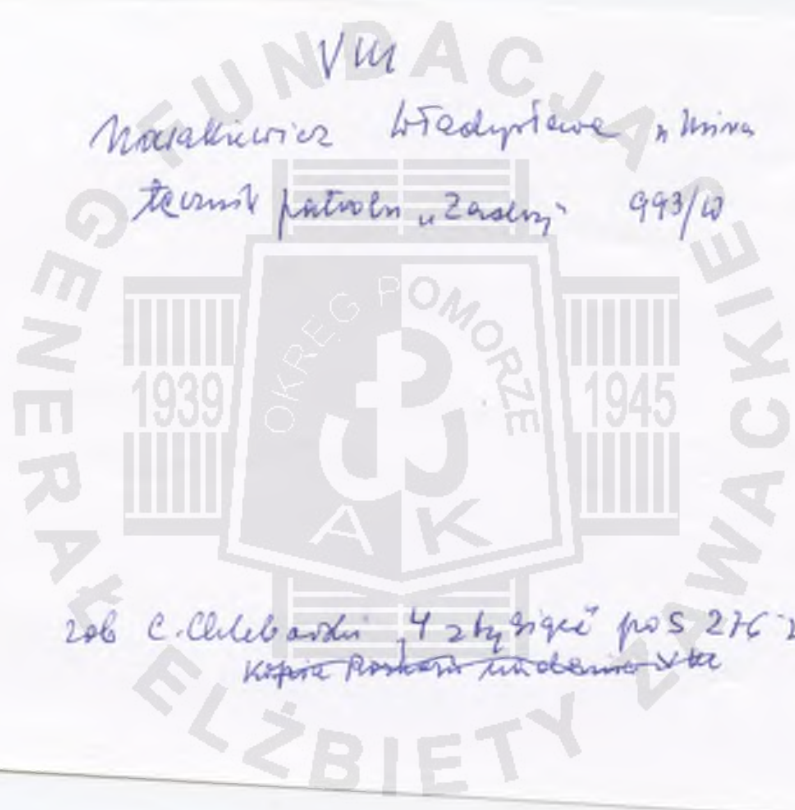 VIII
Nowakiewicz Władysława "Mira
łącznik patrolu "Zadry" 993/W
zob C. Chlebowski "4 z tysiąca" po s 276
Kopia Rozkazu nadania VM
FUNDACJA GENERAŁ ELŻBIETY ZAWACKIEJ
OKRĘG POMORZE
1939
1945
AK